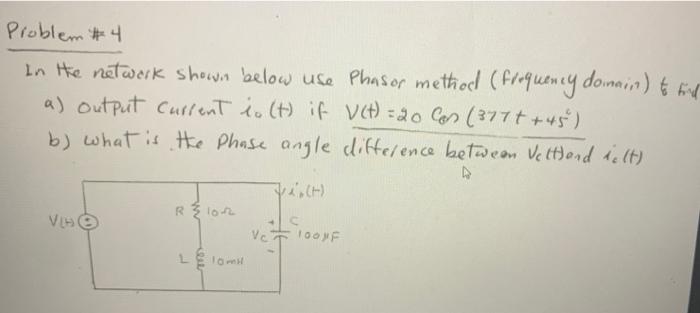 Problem #4
In the network shown below use Phasor method (frequency domain) to find
a) output current io(t) if V(t) = 20 Cos (377t + 45°)
b) what is the phase angle difference between Vc(t) and ic(t)
io(t)
R 10Ω
C
V(t)
+
Vc 100μF
-
L 10mH